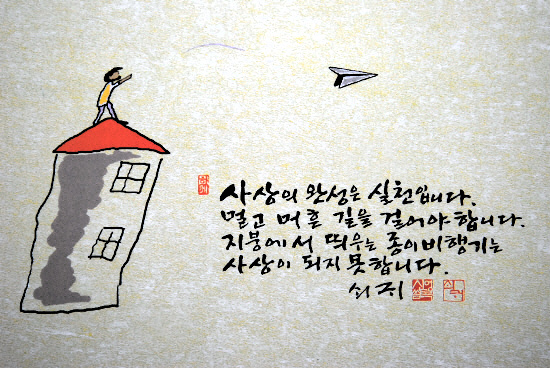 사상의 완성은 실천입니다.
멀고 머흔 길을 걸어야합니다.
지붕에서 띄우는 종이비행기는
사상이 되지 못합니다.
쇠귀